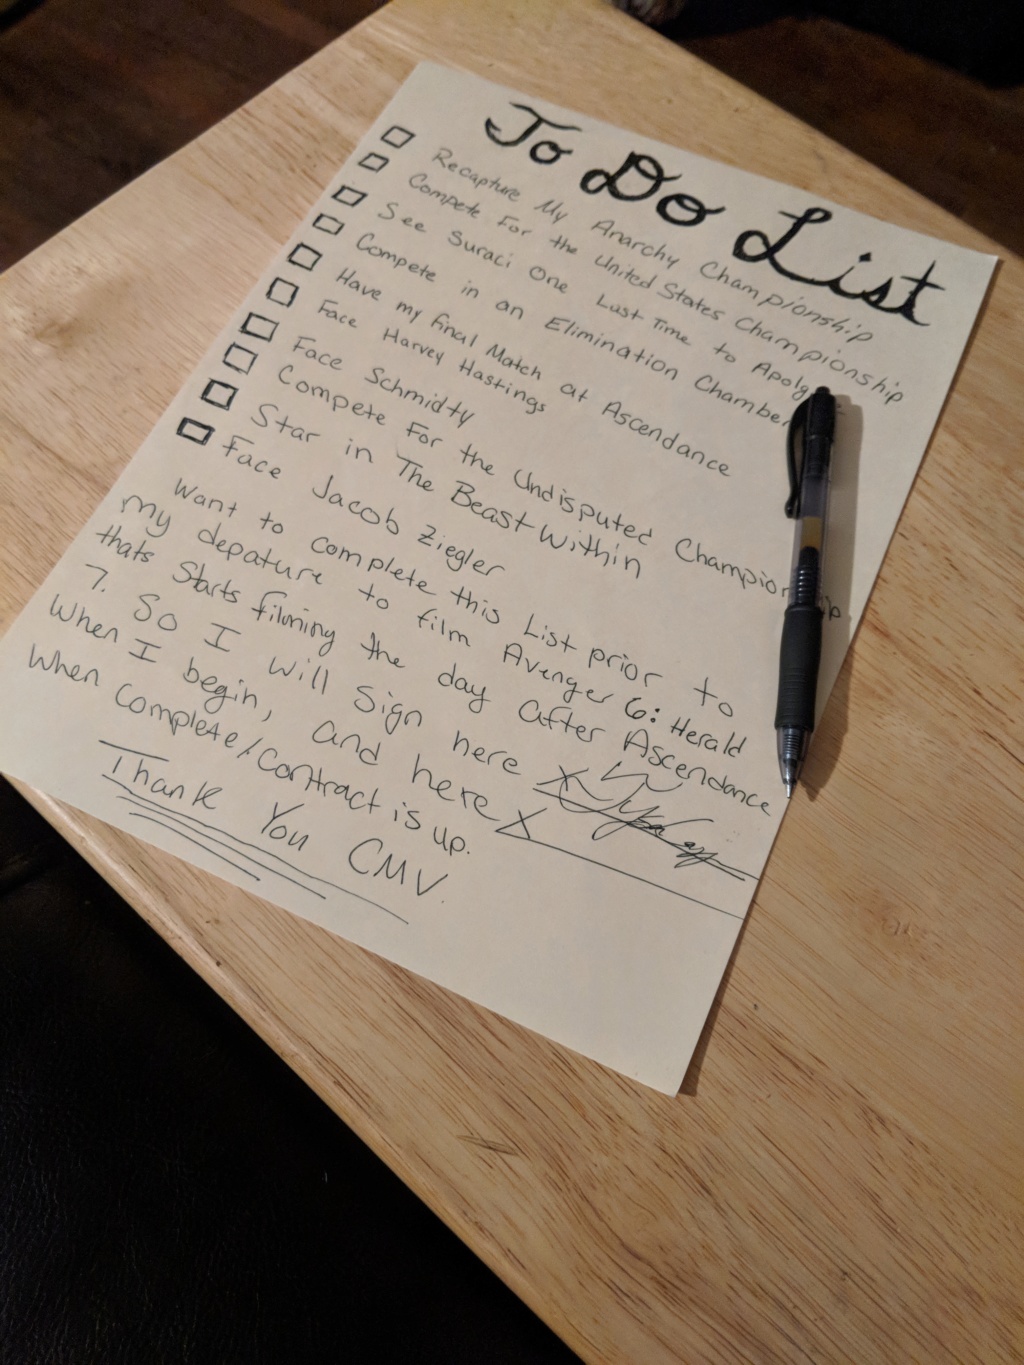 To Do List
Recapture My Anarchy Championship
Compete For the United States Championship
See Suraci One Last Time to
Compete in an Elimination Chamber
Have my final Match at Ascendance
Face Harvey Hastings
Face Schmidty
Compete For the Undisputed Championship
Star in The Beast Within
Face Jacob Ziegler
Want to complete this List prior to
my depature to film Avenger 6: Herald
thats Starts filming the day after Ascendance
7. So I will Sign here X
When I begin, and here X
When complete/contract is up.
Thank You CMV.